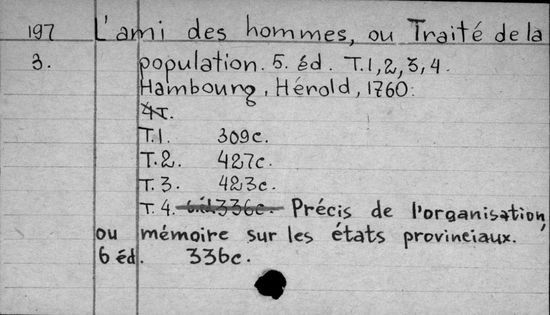 197 L'ami des hommes, ou Traité de la
3. population. 5. éd. T.1,2,3,4.
Hambourg, Hérold, 1760.
4т.
T.1. 309c.
T.2. 427c.
T.3. 423c.
T.4. 6.éd. 336c. Précis de l'organisation,
ou mémoire sur les états provinciaux.
6 éd. 336c.